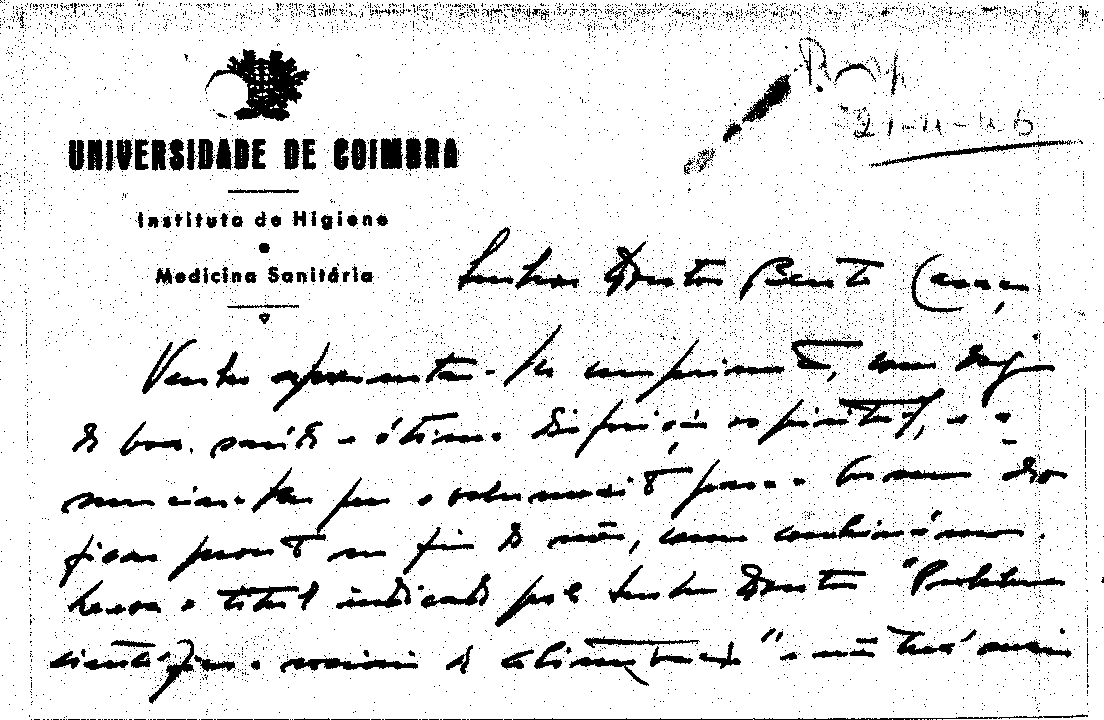 UNIVERSIDADE DE COIMBRA
Instituto de Higiene
e
Medicina Sanitária
21-11-46
Senhor Doutor Bento Caraça
Venho apresentar-lhe cumprimentos, com desejos
de boa saúde e ótima disposição espiritual, e a
nunciar-lhe que o volumezito para a Cosmos deve
ficar pronto no fim do mês, como combinámos.
Levará o título indicado pelo Senhor Doutor "Problemas
científicos e sociais da alimentação" e não terá mais